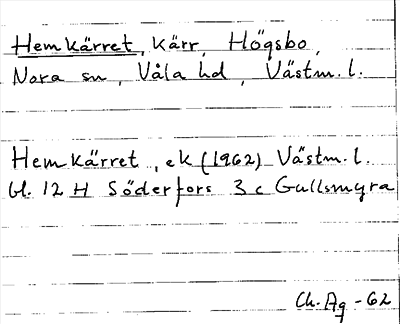 Hemkärret, kärr, Högsbo,
Nora sn, Våla hd, Västm. l.
Hemkärret, ek (1962) Västm. l.
bl. 12 H Söderfors 3 c Gullsmyra
Ch. Ag -62